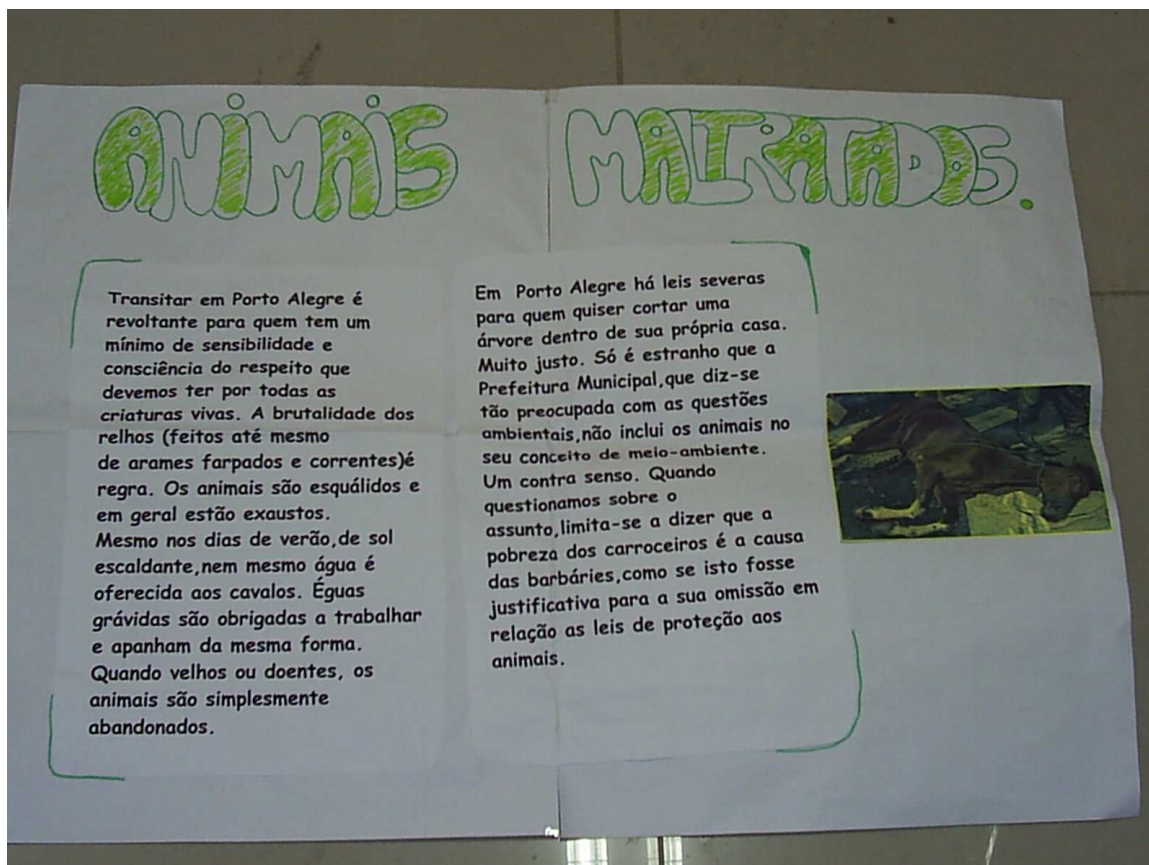 ANIMAIS MALTRATADOS.
Transitar em Porto Alegre é
revoltante para quem tem um
mínimo de sensibilidade e
consciência do respeito que
devemos ter por todas as
criaturas vivas. A brutalidade dos
relhos (feitos até mesmo
de arames farpados e correntes)é
regra. Os animais são esquálidos e
em geral estão exaustos.
Mesmo nos dias de verão,de sol
escaldante,nem mesmo água é
oferecida aos cavalos. Éguas
grávidas são obrigadas a trabalhar
e apanham da mesma forma.
Quando velhos ou doentes, os
animais são simplesmente
abandonados.
Em Porto Alegre há leis severas
para quem quiser cortar uma
árvore dentro de sua própria casa.
Muito justo. Só é estranho que a
Prefeitura Municipal,que diz-se
tão preocupada com as questões
ambientais,não inclui os animais no
seu conceito de meio-ambiente.
Um contra senso. Quando
questionamos sobre o
assunto,limita-se a dizer que a
pobreza dos carroceiros é a causa
das barbáries,como se isto fosse
justificativa para a sua omissão em
relação as leis de proteção aos
animais.